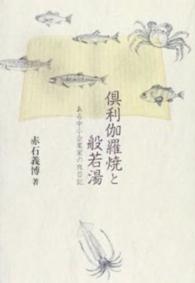 倶利伽羅焼と
般若湯
ある中小企業家の夜日記
赤石義博 著